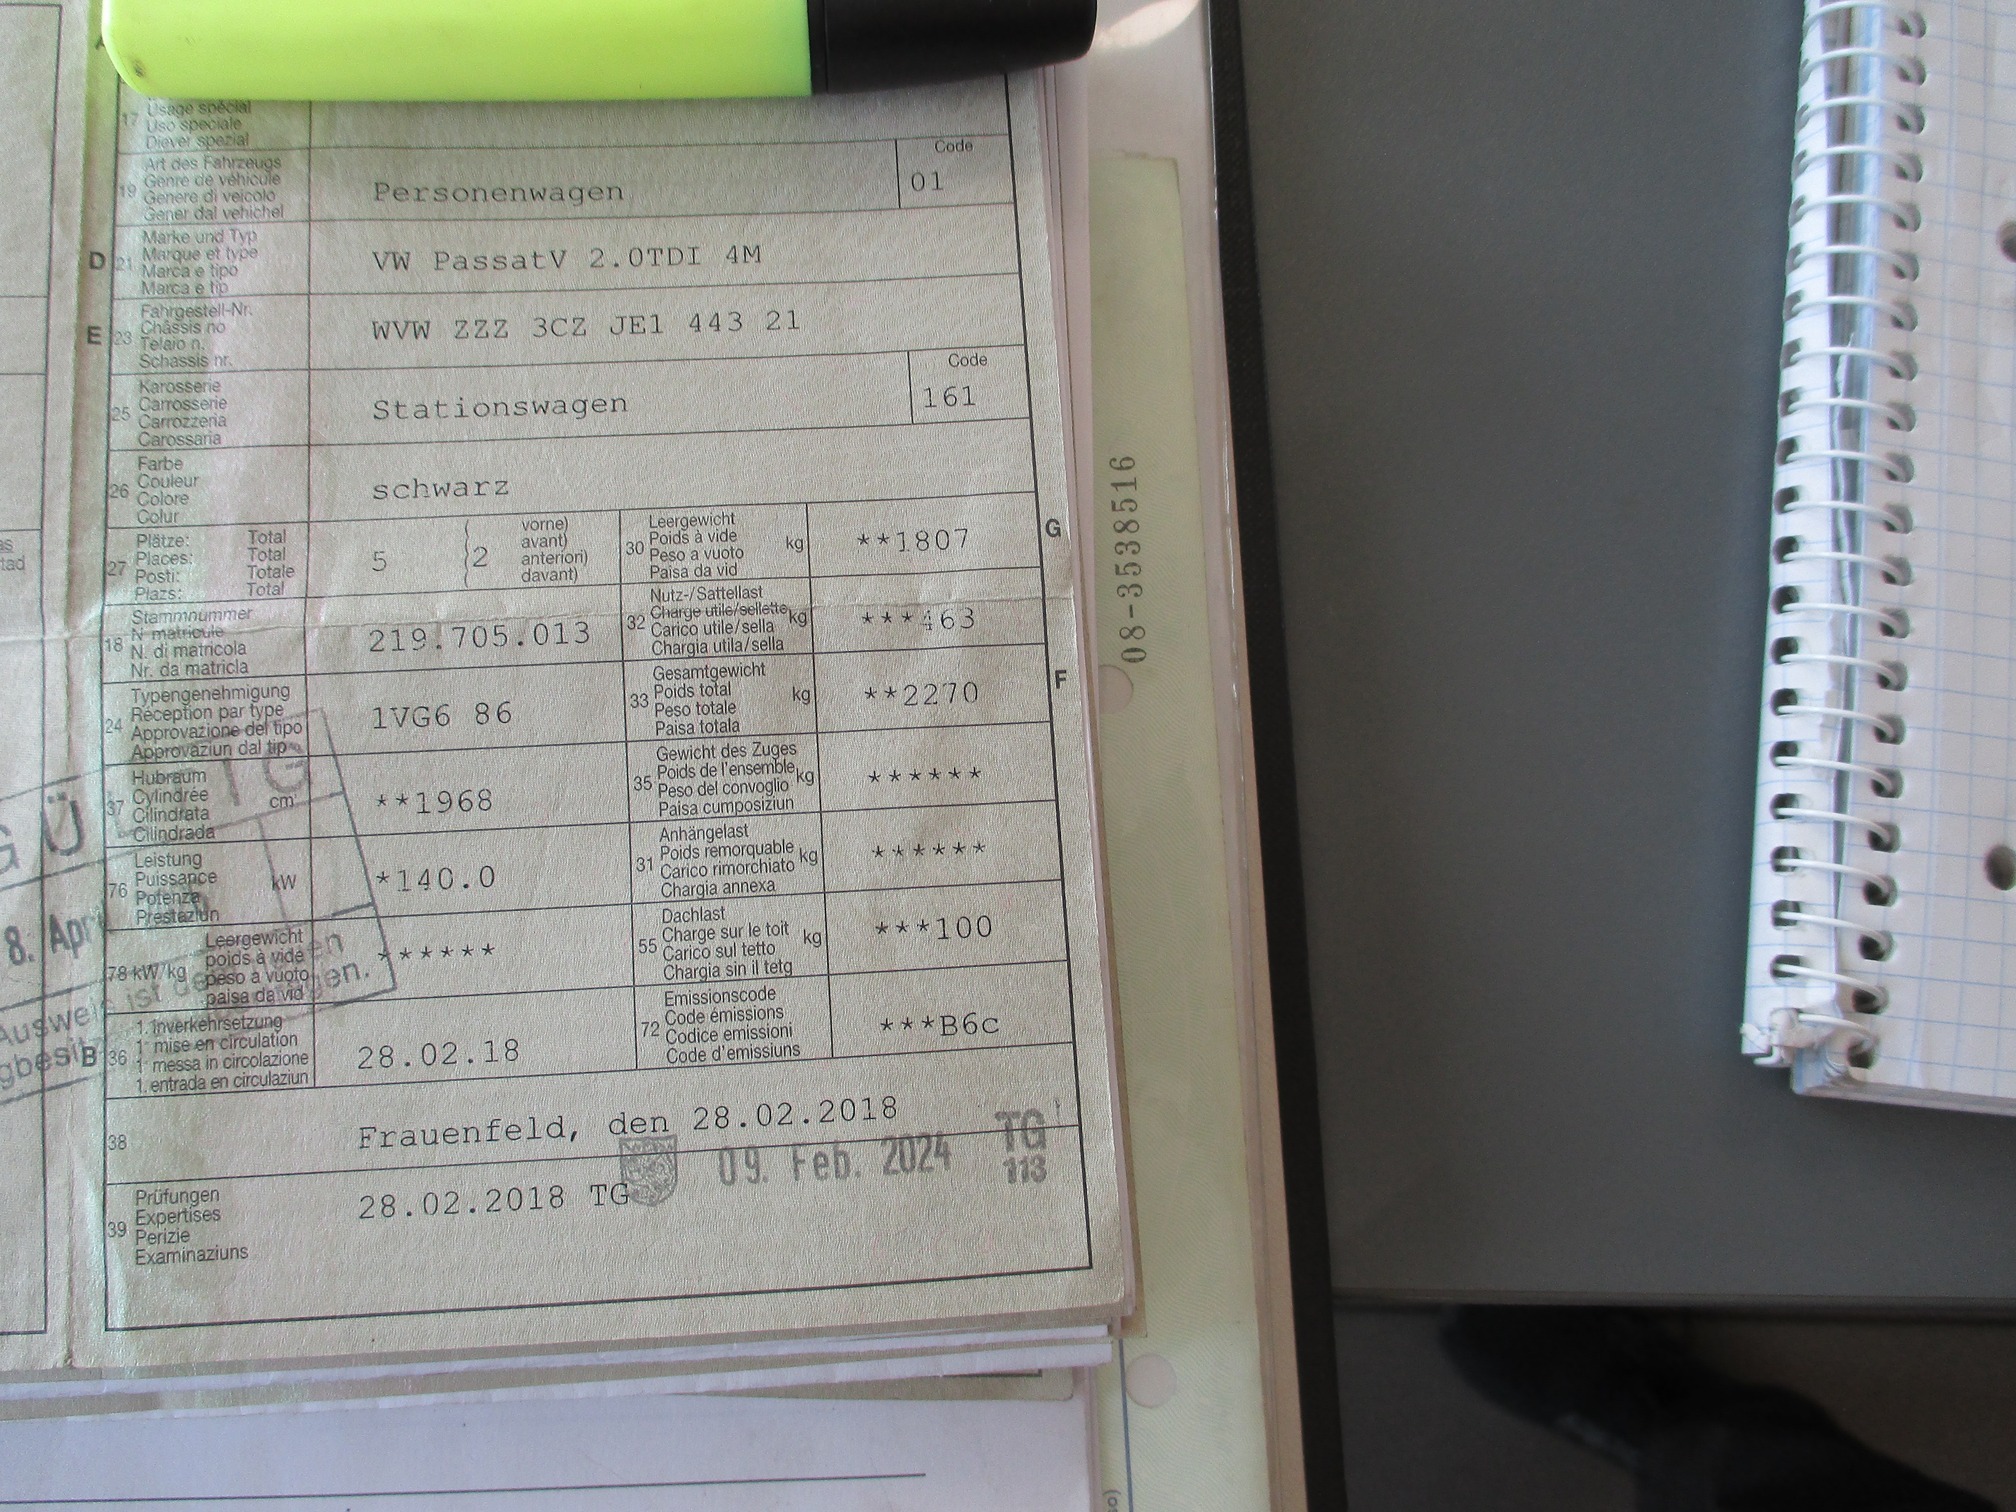 17 Usage spécial
Uso speciale
Diever spezial
19 Art des Fahrzeugs
Genre de véhicule
Genere di veicolo
Gener dal vehichel
Personenwagen
Code
01
D 21 Marke und Typ
Marque et type
Marca e tipo
Marca e tip
VW PassatV 2.0TDI 4M
E 23 Fahrgestell-Nr.
Châssis no
Telaio n.
Schassis nr.
WVW ZZZ 3CZ JE1 443 21
25 Karosserie
Carrosserie
Carrozzeria
Carossaria
Stationswagen
Code
161
26 Farbe
Couleur
Colore
Colur
schwarz
27 Plätze: Total
Places: Total
Posti: Totale
Plazs: Total
5 2
vorne)
avant)
anteriori)
davant)
30 Leergewicht
Poids à vide kg
Peso a vuoto
Paisa da vid
**1807
G
18 Stammnummer
N matricule
N. di matricola
Nr. da matricla
219.705.013
32 Nutz-/Sattellast
Charge utile/sellette kg
Carico utile/sella
Chargia utila/sella
***463
24 Typengenehmigung
Réception par type
Approvazione del tipo
Approvaziun dal tip
1VG6 86
33 Gesamtgewicht
Poids total kg
Peso totale
Paisa totala
**2270
F
37 Hubraum
Cylindrée cm³
Cilindrata
Cilindrada
**1968
35 Gewicht des Zuges
Poids de l'ensemble kg
Peso del convoglio
Paisa cumposiziun
******
76 Leistung
Puissance kW
Potenza
Prestaziun
*140.0
31 Anhängelast
Poids remorquable kg
Carico rimorchiato
Chargia annexa
******
78 kW/kg Leergewicht
poids à vide
peso a vuoto
paisa da vid
******
55 Dachlast
Charge sur le toit kg
Carico sul tetto
Chargia sin il tetg
***100
B 36 1. Inverkehrsetzung
1 mise en circulation
1 messa in circolazione
1. entrada en circulaziun
28.02.18
72 Emissionscode
Code émissions
Codice emissioni
Code d'emissiuns
***B6c
38
Frauenfeld, den 28.02.2018
09. Feb. 2024
TG
113
39 Prüfungen
Expertises
Perizie
Examinaziuns
28.02.2018 TG
GÜ TG
8. Apr
Ausweis ist
08-3538516